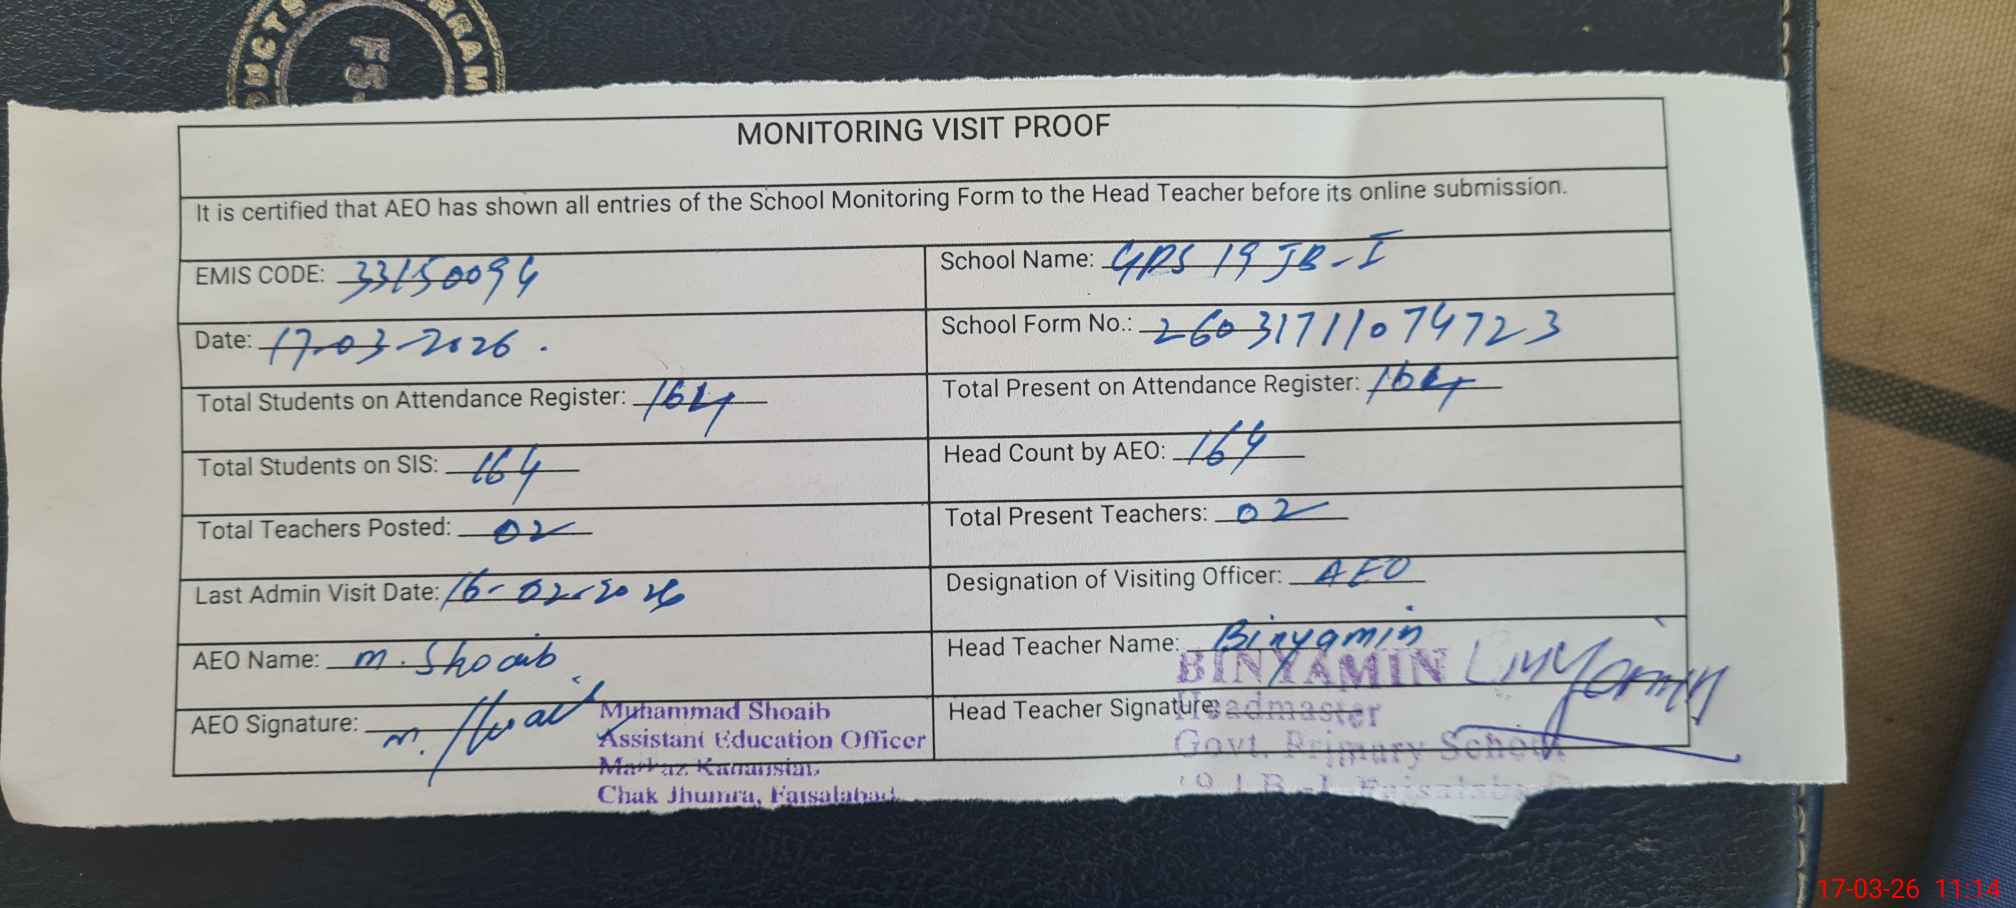 FS-
MONITORING VISIT PROOF
It is certified that AEO has shown all entries of the School Monitoring Form to the Head Teacher before its online submission.
EMIS CODE: 33150094 School Name: GPS 19 JB-I
Date: 17-03-2026. School Form No.: 26031711074723
Total Students on Attendance Register: 164 Total Present on Attendance Register: 164
Total Students on SIS: 164 Head Count by AEO: 164
Total Teachers Posted: 02 Total Present Teachers: 02
Last Admin Visit Date: 16-02-2026 Designation of Visiting Officer: AEO
AEO Name: M. Shoaib Head Teacher Name: Binyamin
BINYAMIN Binyamin
AEO Signature: M. Shoaib Head Teacher Signature:
Muhammad Shoaib Headmaster
Assistant Education Officer Govt. Primary School
Markaz
Chak Jhumra, Faisalabad 19 J.B-I, Faisalabad
17-03-26 11:14